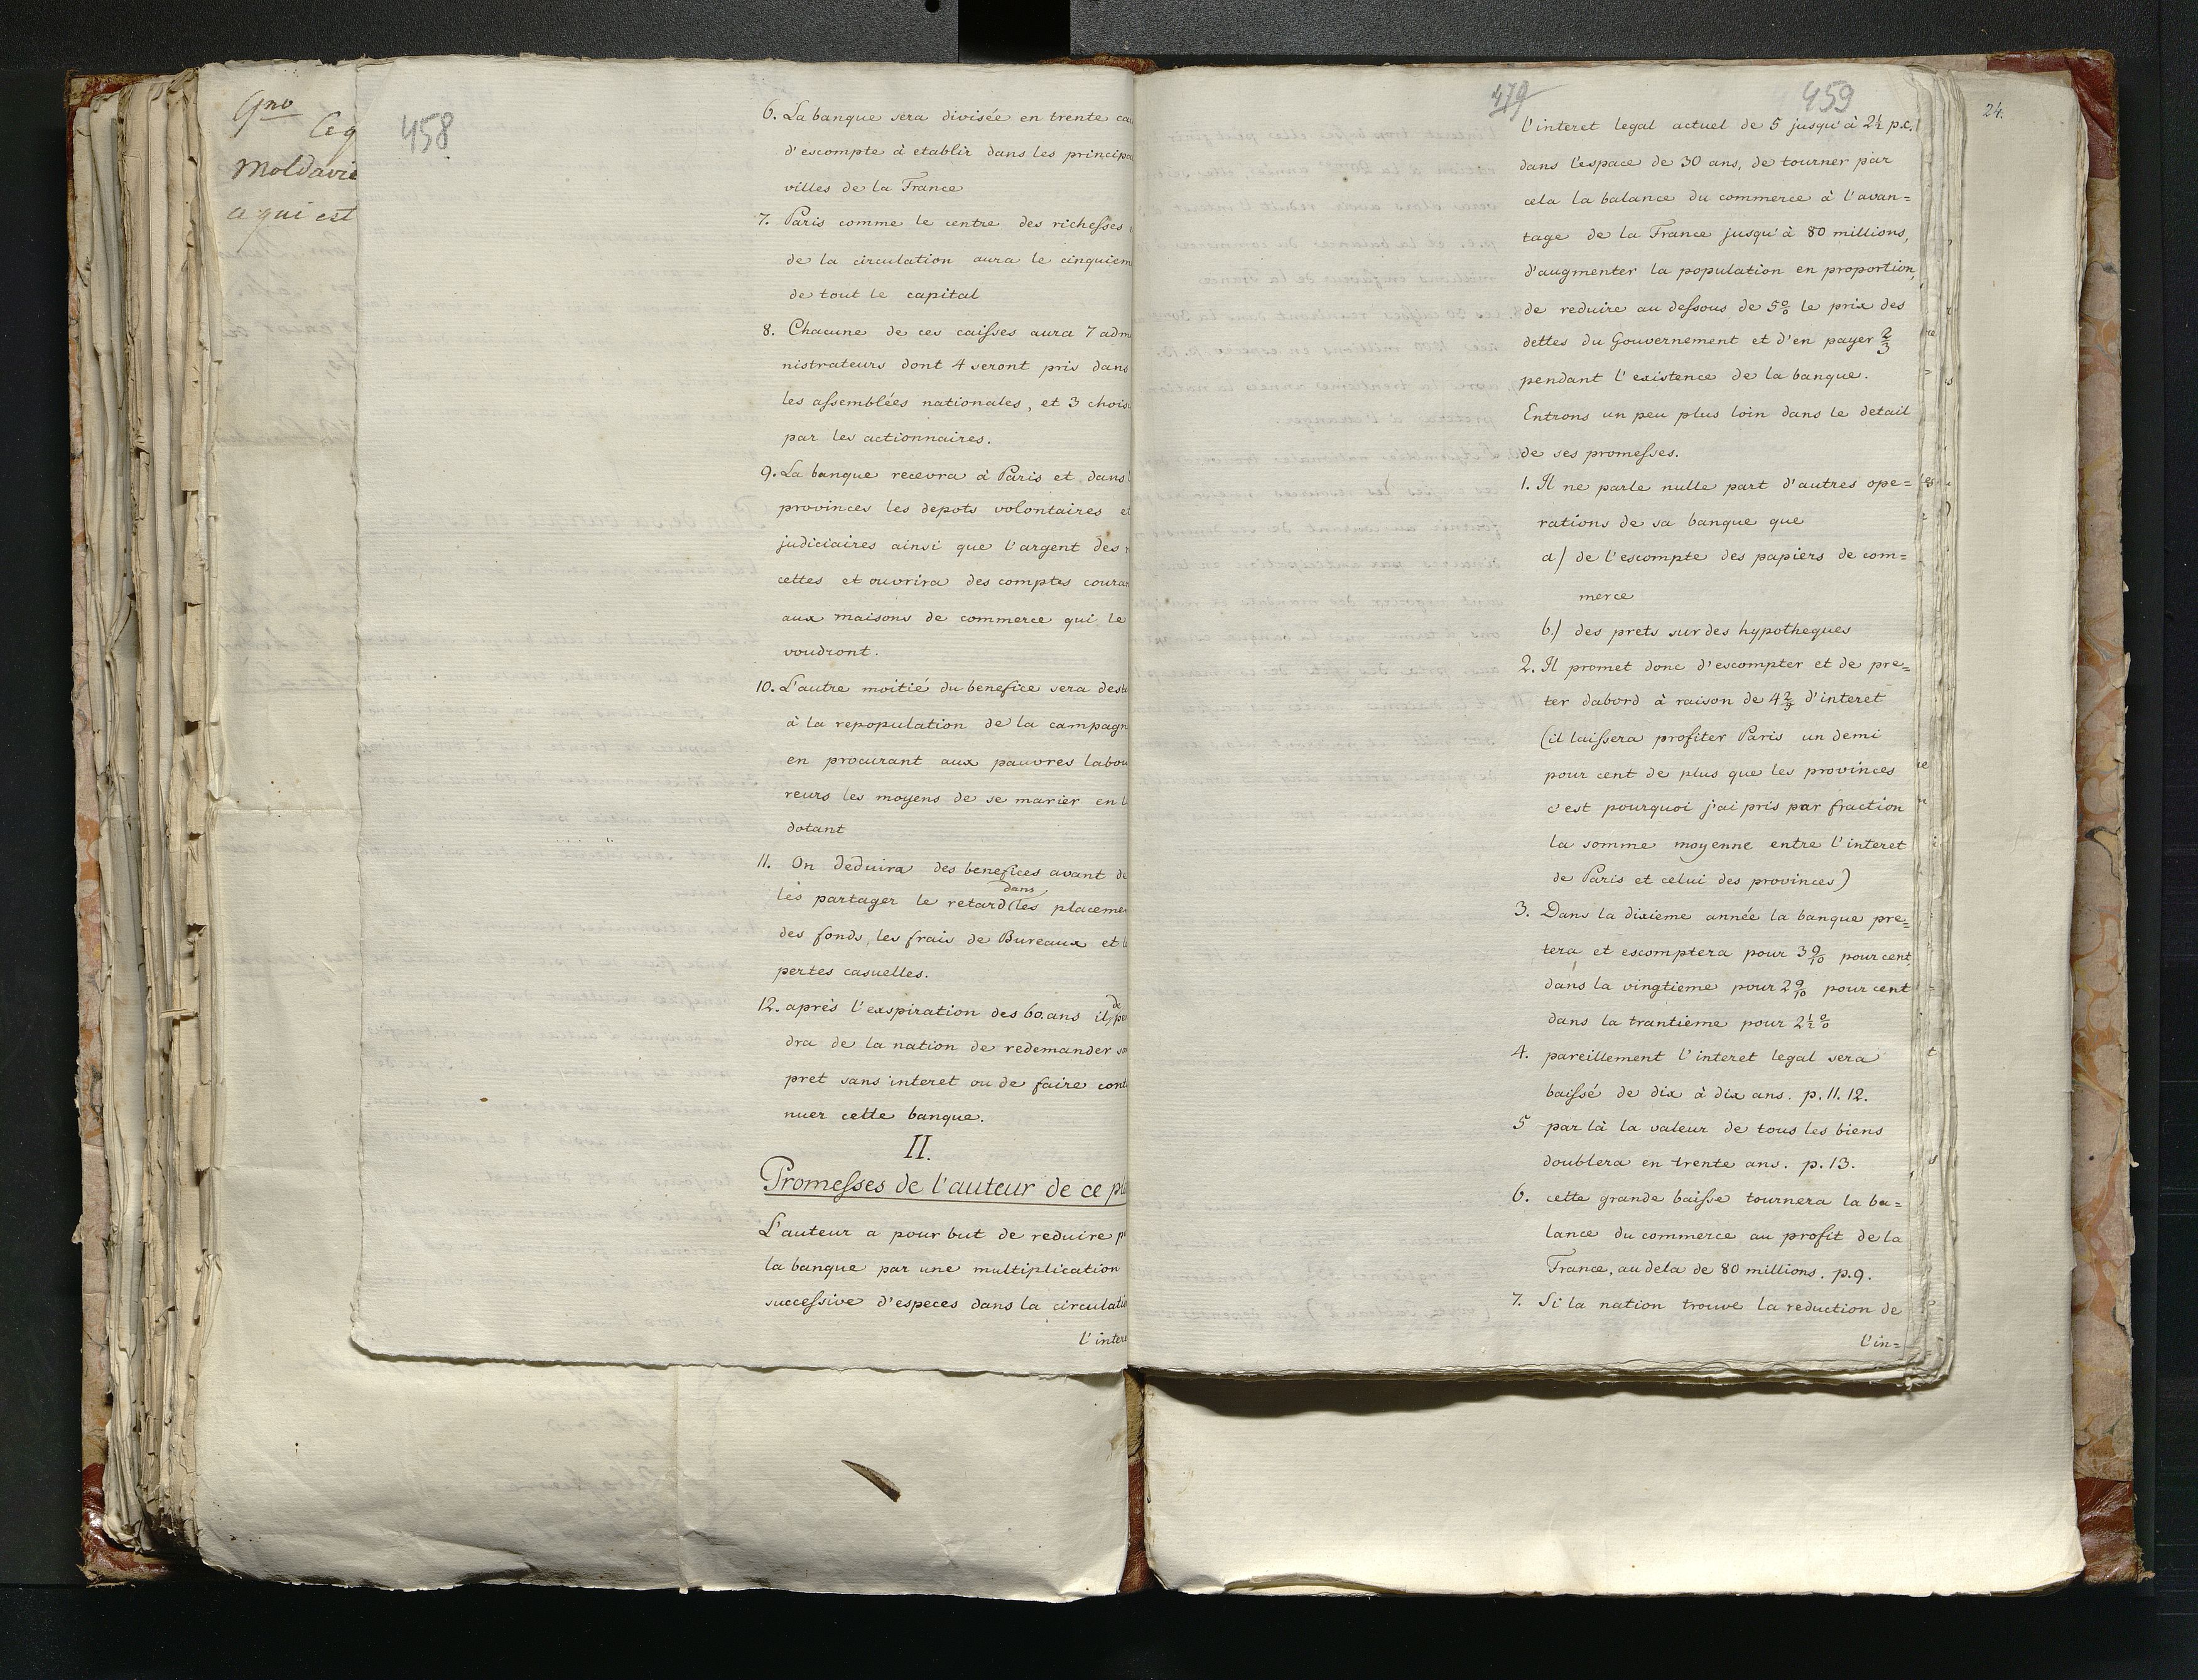 Gno
Moldavie
a qui est
458
6. La banque sera divisée en trente
d'escompte à etablir dans les
villes de la France
7. Paris comme le centre des richesses
de la circulation aura le
de tout le capital
8. Chacune de ces caisses aura 7
nistrateurs dont 4 seront pris dans
les assemblées nationales, et 3
par les actionnaires.
9. La banque recevra à Paris et dans
provinces les depots volontaires et
judiciaires ainsi que l'argent des
cettes et ouvrira des comptes
aux maisons de commerce qui le
voudront.
10. L'autre moitié du benefice sera
à la repopulation de la
en procurant aux pauvres labou
reurs les moyens de se marier en
dotant
11. On deduira des benefices avant de
dans
les partager le retard les
des fonds, les frais de Bureaux et
pertes casuelles.
de
12. après l'exspiration des 60 ans il
dra de la nation de redemander
pret sans interet ou de faire conti
nuer cette banque.
II.
Promesses de l'auteur de ce
L'auteur a pour but de reduire
la banque par une multiplication
successive d'especes dans la
l'inter
479
459
l'interet legal actuel de 5 jusqu'à 2½ p.c.
dans l'espace de 30 ans, de tourner par
cela la balance du commerce à l'avan=
tage de la France jusqu'à 80 millions,
d'augmenter la population en proportion,
de reduire au dessous de 5% le prix des
dettes du Gouvernement et d'en payer 2/3
pendant l'existence de la banque.
Entrons un peu plus loin dans le detail
de ses promesses.
1. Il ne parle nulle part d'autres ope=
rations de sa banque que
a/ de l'escompte des papiers de com=
merce
b./ des prets sur des hypotheques
2. Il promet donc d'escompter et de pre=
ter dabord à raison de 4 2/3 d'interet
(il laissera profiter Paris un demi
pour cent de plus que les provinces
c'est pourquoi j'ai pris par fraction
la somme moyenne entre l'interet
de Paris et celui des provinces)
3. Dans la dixieme année la banque pre=
tera et escomptera pour 3 9/10 pour cent,
dans la vingtieme pour 2 9/10 pour cent
dans la trantieme pour 2½%
4. pareillement l'interet legal sera
baissé de dix à dix ans. p. 11. 12.
5 par là la valeur de tous les biens
doublera en trente ans. p. 13.
6. cette grande baisse tournera la ba=
lance du commerce au profit de la
France, au dela de 80 millions. p. 9.
7. Si la nation trouve la reduction de
l'in=
24.